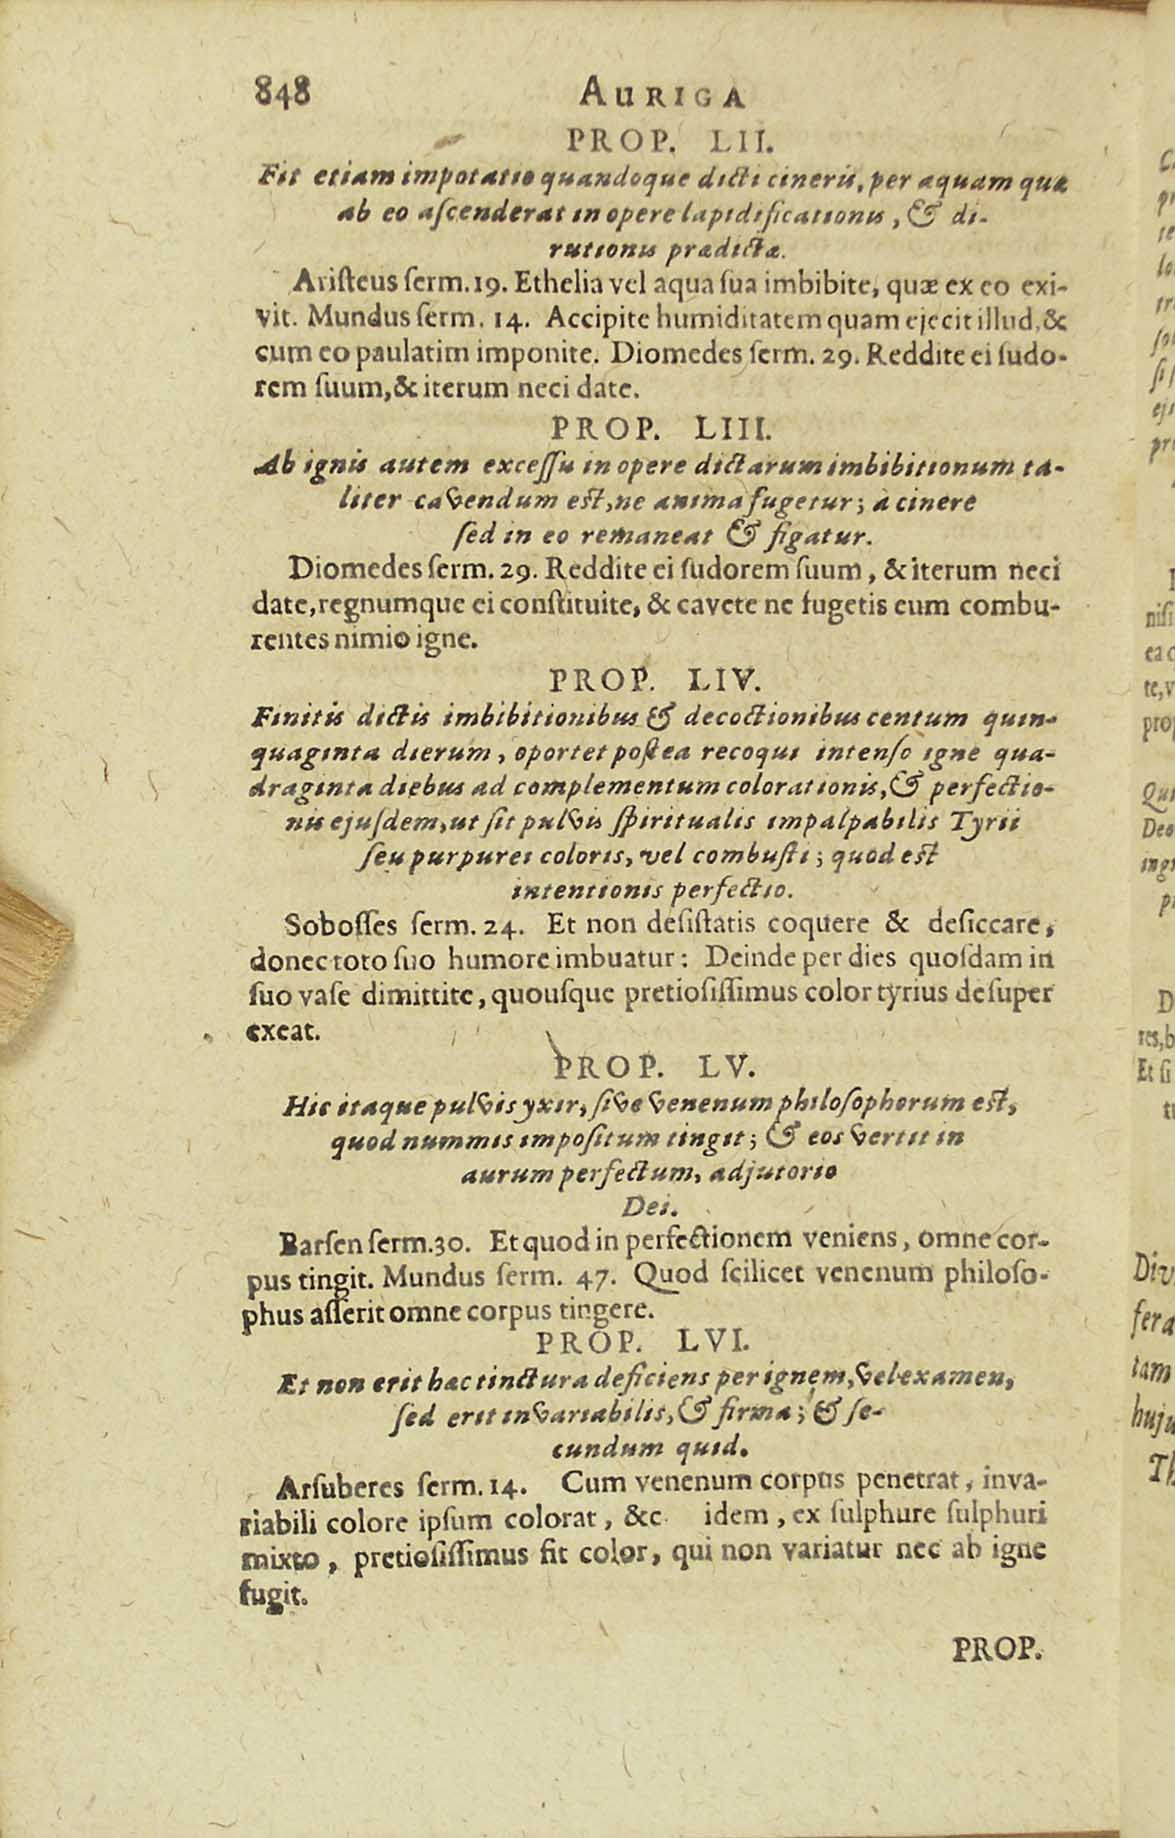 848 AURIGA
PROP. LII.
Fit etiam impotatio quandoque dicti cineris, per aquam quæ
ab eo aſcenderat in opere lapidificationis, & di-
rutionis prædictæ.
Ariſteus ſerm. 19. Ethelia vel aqua ſua imbibite, quæ ex eo exi-
vit. Mundus ſerm. 14. Accipite humiditatem quam ejecit illud, &
cum eo paulatim imponite. Diomedes ſerm. 29. Reddite ei ſudo-
rem ſuum, & iterum neci date.
PROP. LIII.
Ab ignis autem exceſſu in opere dictarum imbibitionum ta-
liter cavendum eſt, ne anima fugetur; à cinere
ſed in eo remaneat & figatur.
Diomedes ſerm. 29. Reddite ei ſudorem ſuum, & iterum neci
date, regnumque ei conſtituite, & cavete ne fugetis eum combu-
rentes nimio igne.
PROP. LIV.
Finitis dictis imbibitionibus & decoctionibus centum quin-
quaginta dierum, oportet poſtea recoqui intenſo igne qua-
draginta diebus ad complementum colorationis, & perfectio-
nis ejuſdem, ut ſit pulvis ſpiritualis impalpabilis Tyrii
ſeu purpurei coloris, vel combuſti; quod eſt
intentionis perfectio.
Soboſſes ſerm. 24. Et non deſiſtatis coquere & deſiccare,
donec toto ſuo humore imbuatur: Deinde per dies quoſdam in
ſuo vaſe dimittite, quouſque pretioſiſſimus color tyrius deſuper
exeat.
PROP. LV.
Hic itaque pulvis yxir, ſive venenum philoſophorum eſt,
quod nummis impoſitum tingit; & eos vertit in
aurum perfectum, adjutorio
Dei.
Barſen ſerm. 30. Et quod in perfectionem veniens, omne cor-
pus tingit. Mundus ſerm. 47. Quod ſcilicet venenum philoſo-
phus aſſerit omne corpus tingere.
PROP. LVI.
Et non erit hac tinctura deficiens per ignem, vel examen,
ſed erit invariabilis, & firma; & ſe-
cundum quid.
Arſuberes ſerm. 14. Cum venenum corpus penetrat, inva-
riabili colore ipſum colorat, &c idem, ex ſulphure ſulphuri
mixto, pretioſiſſimus fit color, qui non variatur nec ab igne
fugit.
PROP.